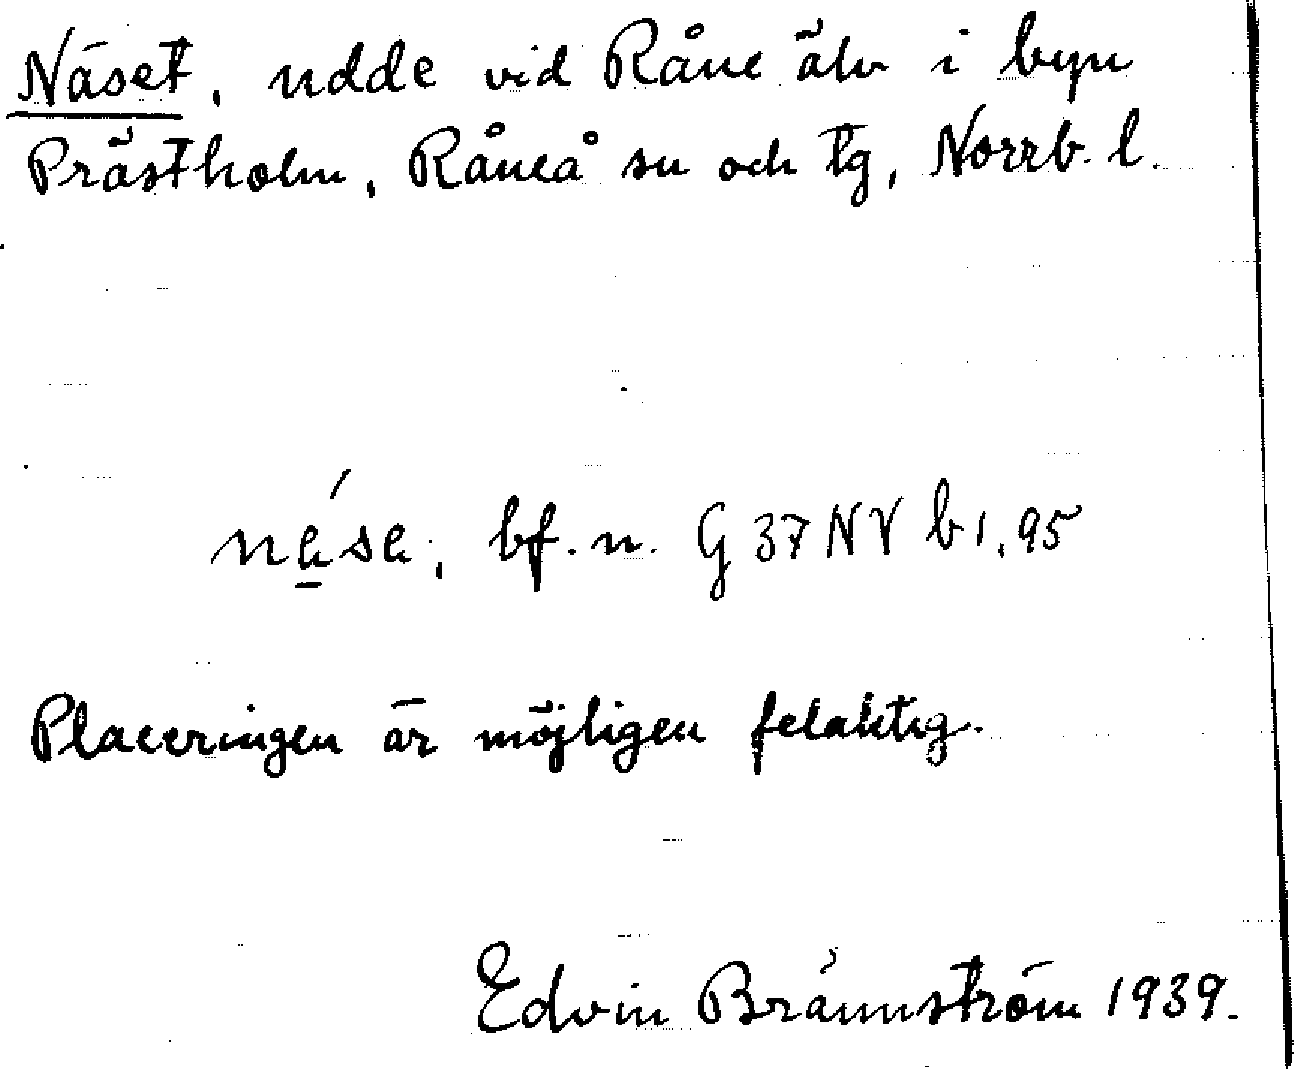 Näset, udde vid Råne älv i byn
Prästholm, Råneå sn och tg, Norrb. l.
bf. n. G 37 NV b 1, 95
Placeringen är möjligen felaktig.
Edvin Brännström 1939.